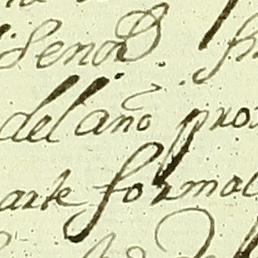 Señor
del año pro
arte formal